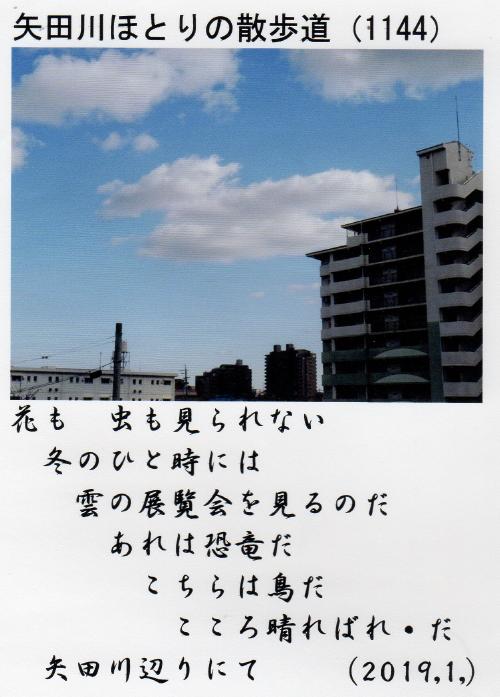 矢田川ほとりの散歩道（1144）
花も　虫も見られない
冬のひと時には
雲の展覧会を見るのだ
あれは恐竜だ
こちらは鳥だ
こころ晴ればれ・だ
矢田川辺りにて　　（2019,1,）